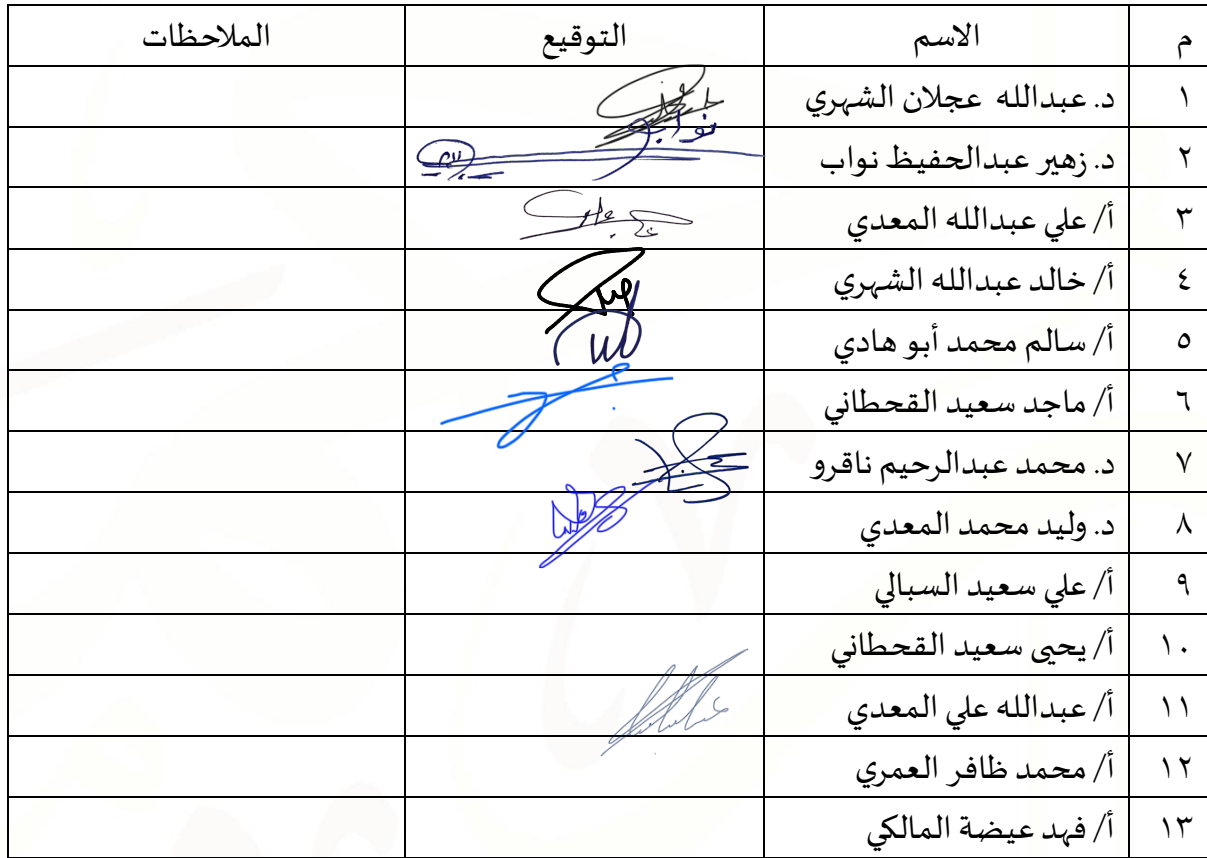 م الاسم التوقيع الملاحظات
١ د. عبدالله عجلان الشهري
٢ د. زهير عبدالحفيظ نواب نواب
٣ أ/ علي عبدالله المعدي
٤ أ/ خالد عبدالله الشهري
٥ أ/ سالم محمد أبو هادي
٦ أ/ ماجد سعيد القحطاني
٧ د. محمد عبدالرحيم ناقرو
٨ د. وليد محمد المعدي
٩ أ/ علي سعيد السبالي
١٠ أ/ يحيى سعيد القحطاني
١١ أ/ عبدالله علي المعدي
١٢ أ/ محمد ظافر العمري
١٣ أ/ فهد عيضة المالكي